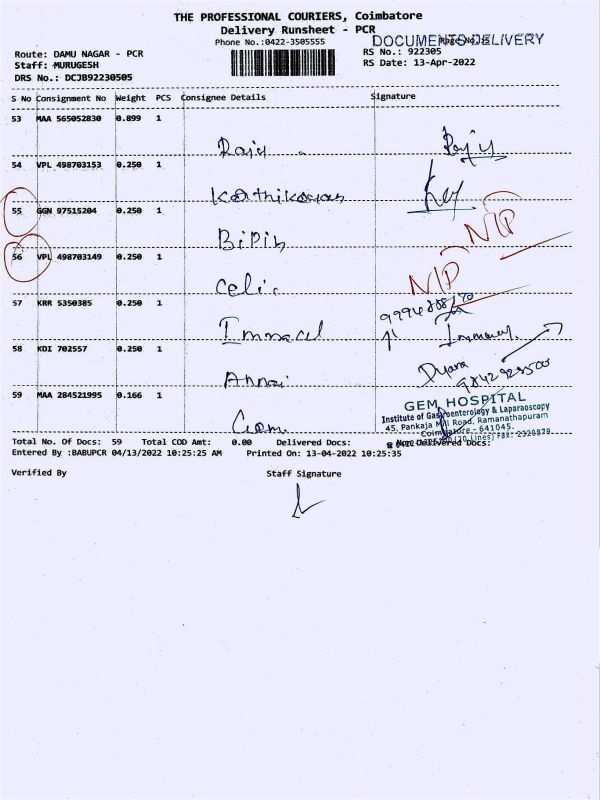 THE PROFESSIONAL COURIERS, Coimbatore
Delivery Runsheet - PCR
Phone No.:0422-3505555
DOCUMENTS DELIVERY
Route: DAMU NAGAR - PCR
RS No.: 922305
Staff: MURUGESH
RS Date: 13-Apr-2022
DRS No.: DCJB92230505
S No Consignment No Weight PCS Consignee Details Signature
53 MAA 565052830 0.899 1
Raju
54 VPL 498703153 0.250 1
Karthikeyan
55 GGN 97515204 0.250 1
N/P
BiPin
56 VPL 498703149 0.250 1
N/P
Celi
57 KRR 5350385 0.250 1
Immacul
58 KDI 702557 0.250 1
Annai
59 MAA 284521995 0.166 1
Gem
GEM HOSPITAL
Institute of Gastroenterology & Laparaoscopy
45, Pankaja Mill Road, Ramanathapuram
Coimbatore - 641045.
Total No. Of Docs: 59 Total COD Amt: 0.00 Delivered Docs: Non-Delivered Docs:
Entered By :BABUPCR 04/13/2022 10:25:25 AM Printed On: 13-04-2022 10:25:35
Verified By Staff Signature